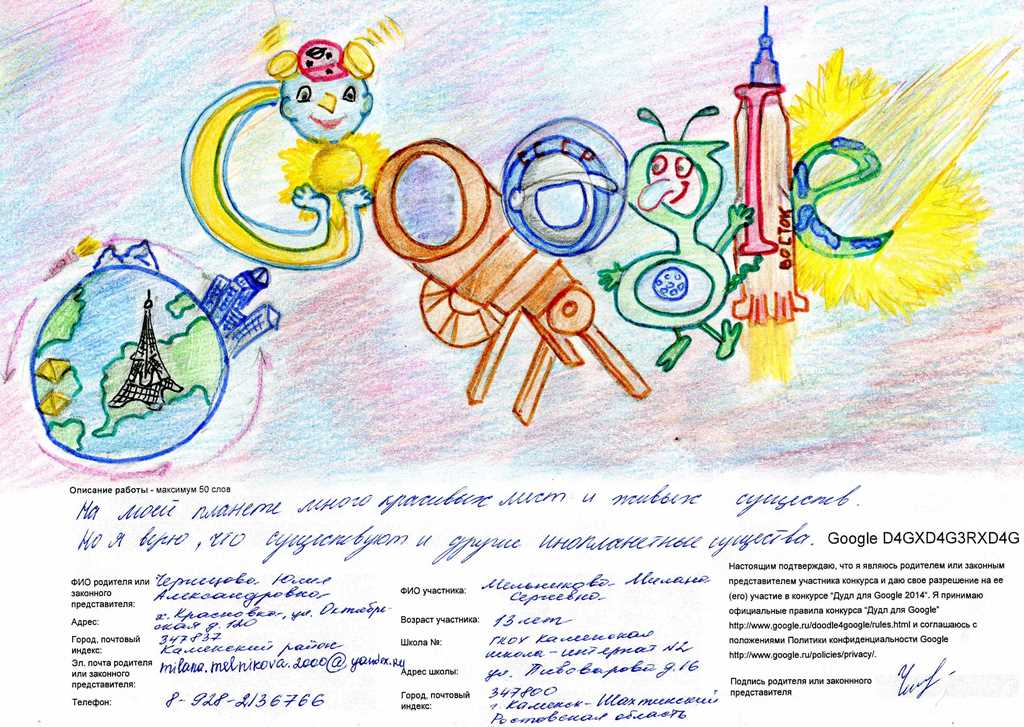 Google
СССР
ВОСТОК
Описание работы - максимум 50 слов
На моей планете много красивых мест и живых существ.
Но я верю, что существуют и другие инопланетные существа.
Google D4GXD4G3RXD4G
ФИО родителя или законного представителя:
Юлия Александровна
Адрес:
х. Красновка, ул. Октябрьская д. 120
Город, почтовый индекс:
347837
Каменский район
Эл. почта родителя или законного представителя:
milana.melnikova.2000@yandex.ru
Телефон:
8-928-2136766
ФИО участника:
Мельникова Милана Сергеевна
Возраст участника:
13 лет
Школа №:
ГКОУ Каменская школа-интернат №2
Адрес школы:
ул. Пивоварова д.16
Город, почтовый индекс:
347800
г. Каменск-Шахтинский
Ростовская область
Настоящим подтверждаю, что я являюсь родителем или законным
представителем участника конкурса и даю свое разрешение на ее
(его) участие в конкурсе "Дудл для Google 2014". Я принимаю
официальные правила конкурса "Дудл для Google"
http://www.google.ru/doodle4google/rules.html и соглашаюсь с
положениями Политики конфиденциальности Google
http://www.google.ru/policies/privacy/.
Подпись родителя или законнного
представителя